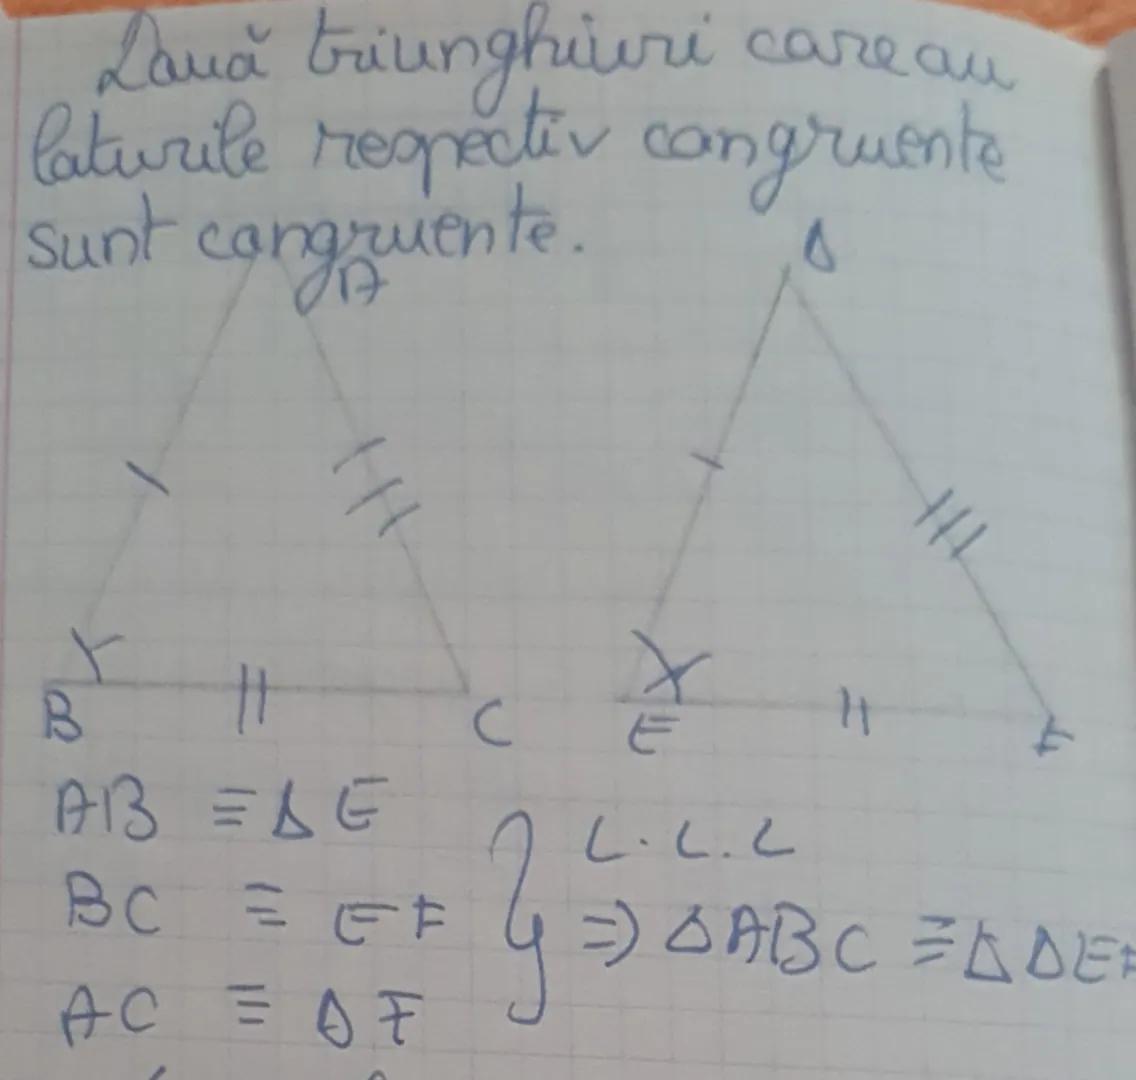 Două triunghiuri care au
laturile respectiv congruente
sunt congruente.
A
D
B
C
E
F
AB ≡ DE
BC ≡ EF
AC ≡ DF
L.L.L
⇒ ΔABC ≡ ΔDEF